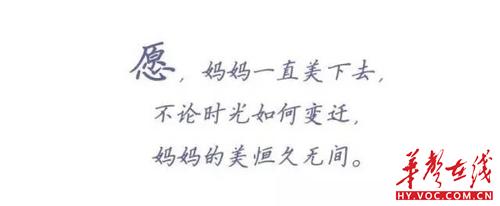 愿，妈妈一直美下去，
不论时光如何变迁，
妈妈的美恒久无间。
华声在线
HY.VOC.COM.CN